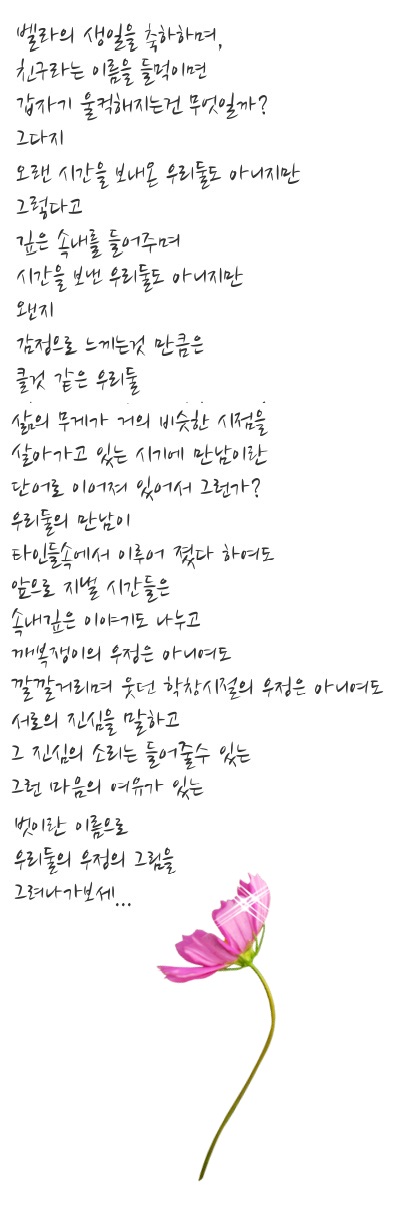 벨라의 생일을 축하하며,
친구라는 이름을 들먹이면
갑자기 울컥해지는건 무엇일까?
그다지
오랜 시간을 보내온 우리둘도 아니지만
그렇다고
깊은 속내를 들어주며
시간을 보낸 우리둘도 아니지만
왠지
감정으로 느끼는것 만큼은
클것 같은 우리둘
삶의 무게가 거의 비슷한 시점을
살아가고 있는 시기에 만남이란
단어로 이어져 있어서 그런가?
우리둘의 만남이
타인들속에서 이루어 졌다 하여도
앞으로 지낼 시간들은
속내깊은 이야기도 나누고
깨복쟁이의 우정은 아니여도
깔깔거리며 웃던 학창시절의 우정은 아니여도
서로의 진심을 말하고
그 진심의 소리는 들어줄수 있는
그런 마음의 여유가 있는
벗이란 이름으로
우리둘의 우정의 그림을
그려나가보세...